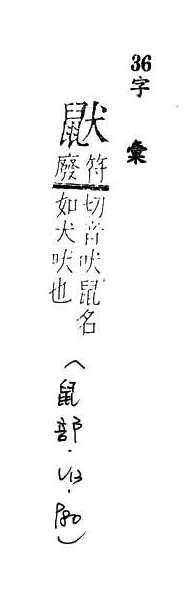 36字彙
鼣
符廢
切音吠鼠名
如犬吠也
(鼠部·V13·P80)